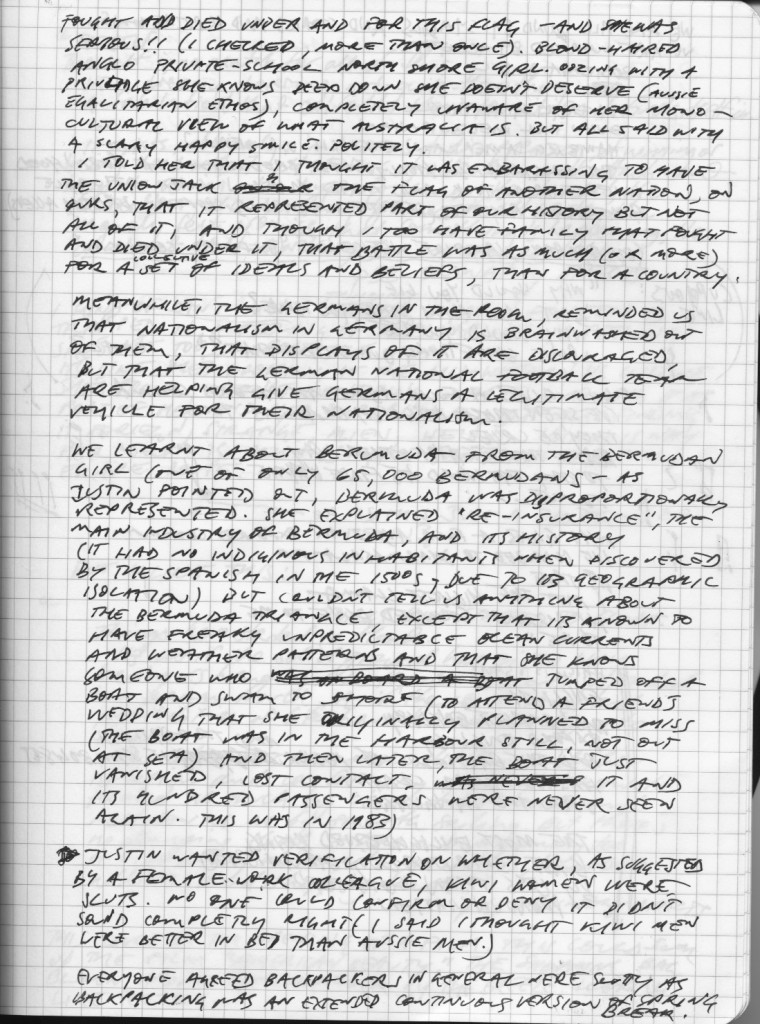 FOUGHT AND DIED UNDER AND FOR THIS FLAG – AND SHE WAS
SERIOUS!! (I CHECKED, MORE THAN ONCE). BLOND-HAIRED
ANGLO PRIVATE-SCHOOL NORTH SHORE GIRL. OOZING WITH A
PRIVILEGE SHE KNOWS DEEP DOWN SHE DOESN'T DESERVE (AUSSIE
EGALITARIAN ETHOS), COMPLETELY UNAWARE OF HER MONO-
CULTURAL VIEW OF WHAT AUSTRALIA IS. BUT ALL SAID WITH
A SCARY HAPPY SMILE. POLITELY.
I TOLD HER THAT I THOUGHT IT WAS EMBARASSING TO HAVE
THE UNION JACK, THE FLAG OF ANOTHER NATION, ON
OURS, THAT IT REPRESENTED PART OF OUR HISTORY BUT NOT
ALL OF IT, AND THOUGH I TOO HAVE FAMILY THAT FOUGHT
AND DIED UNDER IT, THAT BATTLE WAS AS MUCH (OR MORE)
FOR A COLLECTIVE SET OF IDEALS AND BELIEFS, THAN FOR A COUNTRY.
MEANWHILE, THE GERMANS IN THE ROOM, REMINDED US
THAT NATIONALISM IN GERMANY IS BRAINWASHED OUT
OF THEM, THAT DISPLAYS OF IT ARE DISCOURAGED,
BUT THAT THE GERMAN NATIONAL FOOTBALL TEAM
ARE HELPING GIVE GERMANS A LEGITIMATE
VEHICLE FOR THEIR NATIONALISM.
WE LEARNT ABOUT BERUMUDA FROM THE BERMUDAN
GIRL (ONE OF ONLY 65,000 BERMUDANS – AS
JUSTIN POINTED OUT, BERMUDA WAS DISPROPORTIONALLY
REPRESENTED. SHE EXPLAINED "RE-INSURANCE", THE
MAIN INDUSTRY OF BERMUDA, AND ITS HISTORY
(IT HAD NO INDIGINOUS INHABITANTS WHEN DISCOVERED
BY THE SPANISH IN THE 1500S, DUE TO ITS GEOGRAPHIC
ISOLATION) BUT COULDN'T TELL US ANYTHING ABOUT
THE BERMUDA TRIANGLE, EXCEPT THAT ITS KNOWN TO
HAVE FREAKY UNPREDICTABLE OCEAN CURRENTS
AND WEATHER PATTERNS AND THAT SHE KNOWS
SOMEONE WHO WAS ON BOARD A BOAT JUMPED OFF A
BOAT AND SWAM TO SHORE (TO ATTEND A FRIEND'S
WEDDING THAT SHE ORIGINALLY PLANNED TO MISS
(THE BOAT WAS IN THE HARBOUR STILL, NOT OUT
AT SEA) AND THEN LATER, THE BOAT JUST
VANISHED, LOST CONTACT. WAS NEVER IT AND
ITS HUNDRED PASSENGERS WERE NEVER SEEN
AGAIN. THIS WAS IN 1983)
JUSTIN WANTED VERIFICATION ON WHETHER, AS SUGGESTED
BY A FEMALE WORK COLLEAGUE, KIWI WOMEN WERE
SLUTS. NO ONE COULD CONFIRM OR DENY IT DIDN'T
SOUND COMPLETLY RIGHT (I SAID I THOUGHT KIWI MEN
WERE BETTER IN BED THAN AUSSIE MEN.)
EVERYONE AGREED BACKPACKERS IN GENERAL WERE SLUTTY AS
BACKPACKING WAS AN EXTENDED CONTINUOUS VERSION OF SPRING
BREAK.